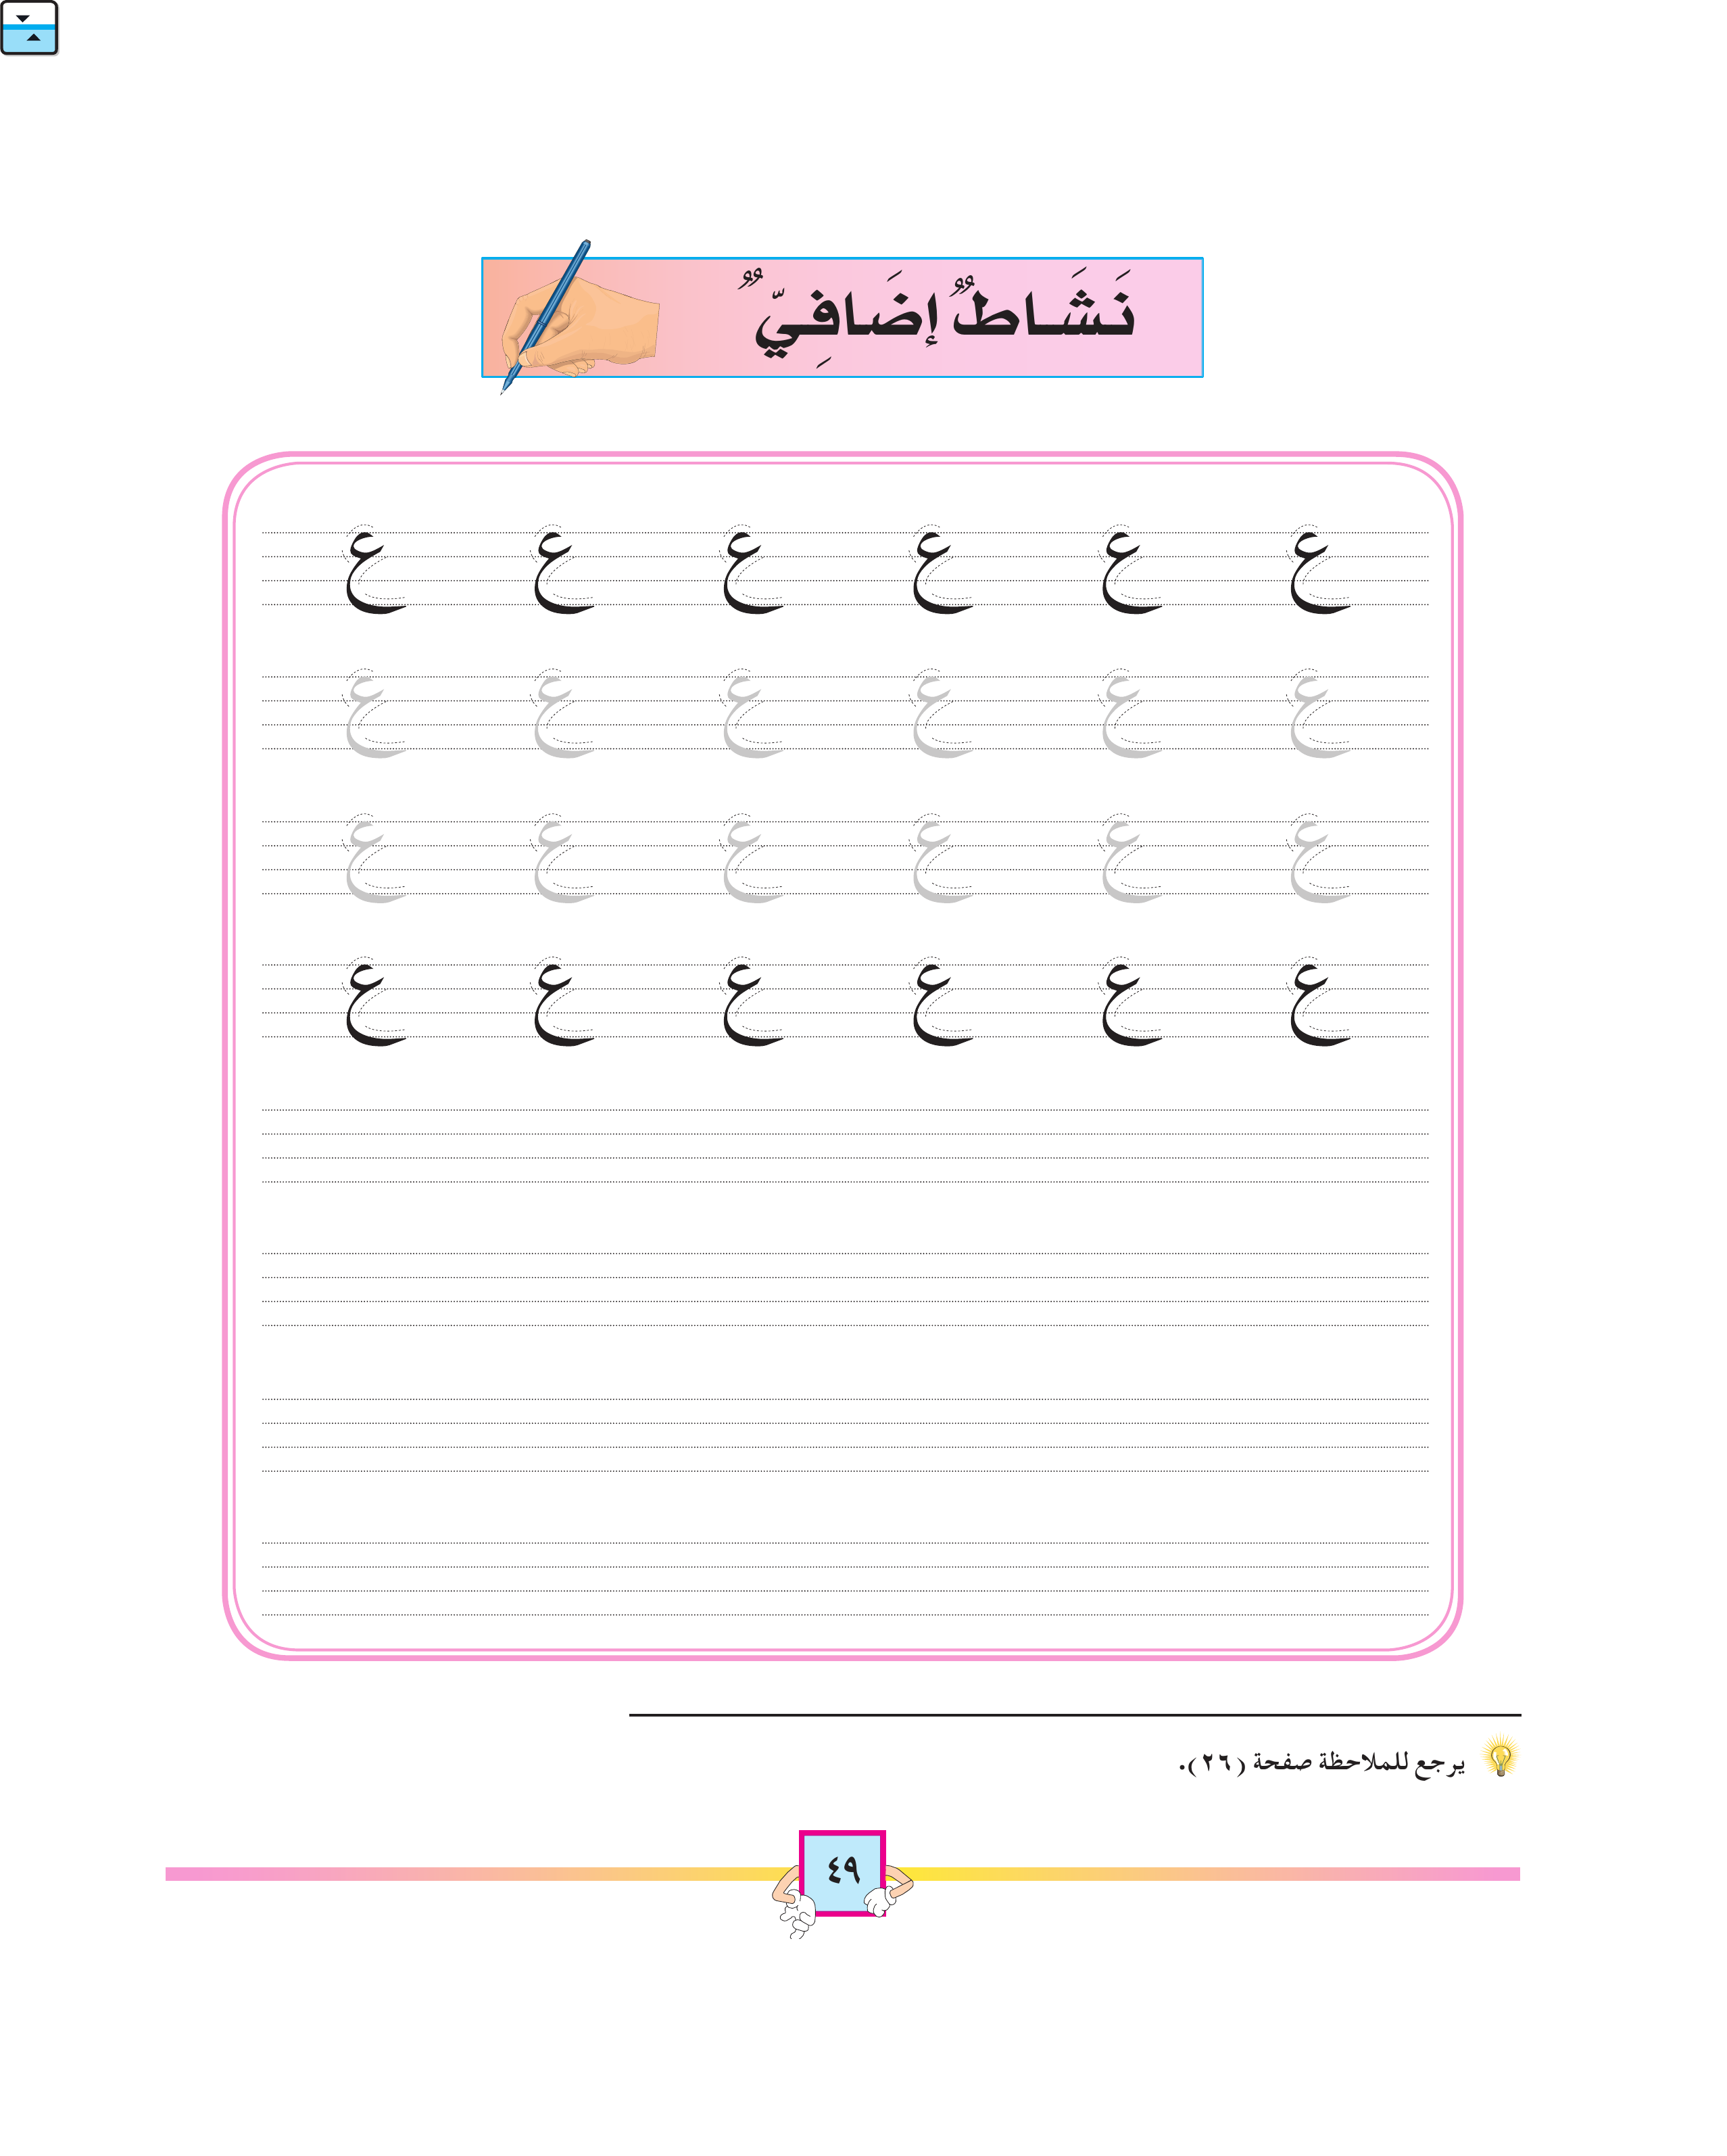 نَشَاطٌ إضَافِيٌّ
ع ع ع ع ع ع
ع ع ع ع ع ع
ع ع ع ع ع ع
ع ع ع ع ع ع
يرجع للملاحظة صفحة (٢٦).
٤٩